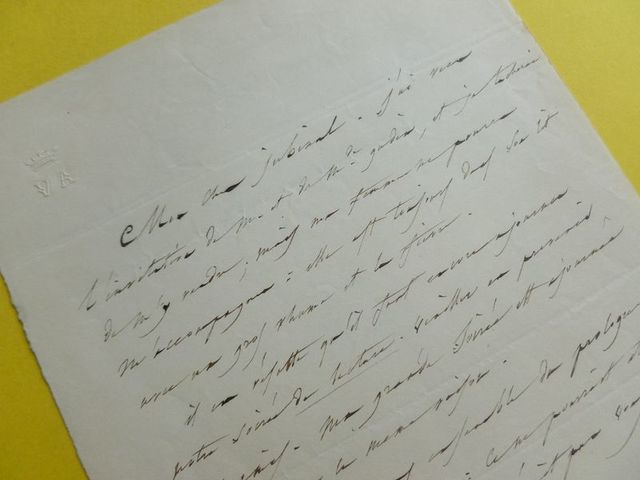 Mon cher Jubinal. j'ai reçu
l'invitation de Mr et de Mme Gudin, et je tâcherai
de m'y rendre; mais ma femme ne pourra
m'accompagner: elle est toujours dans son lit
avec un gros rhume et la fièvre.
il en résulte qu'il faut encore ajourner
notre soirée de lecture. veuillez en prévenir
Ma grande soirée est ajournée
la même raison.
de prologue